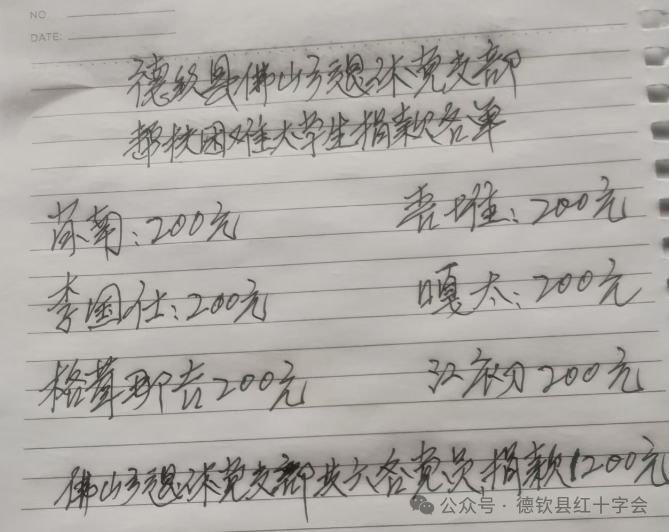 NO.
DATE:
德钦县佛山乡退休党支部
帮扶困难大学生捐款名单
苏菊:200元 杏堆:200元
李国仕:200元 嘎太:200元
格茸那吉200元 江永初200元
佛山乡退休党支部共六名党员,捐款1200元
公众号·德钦县红十字会